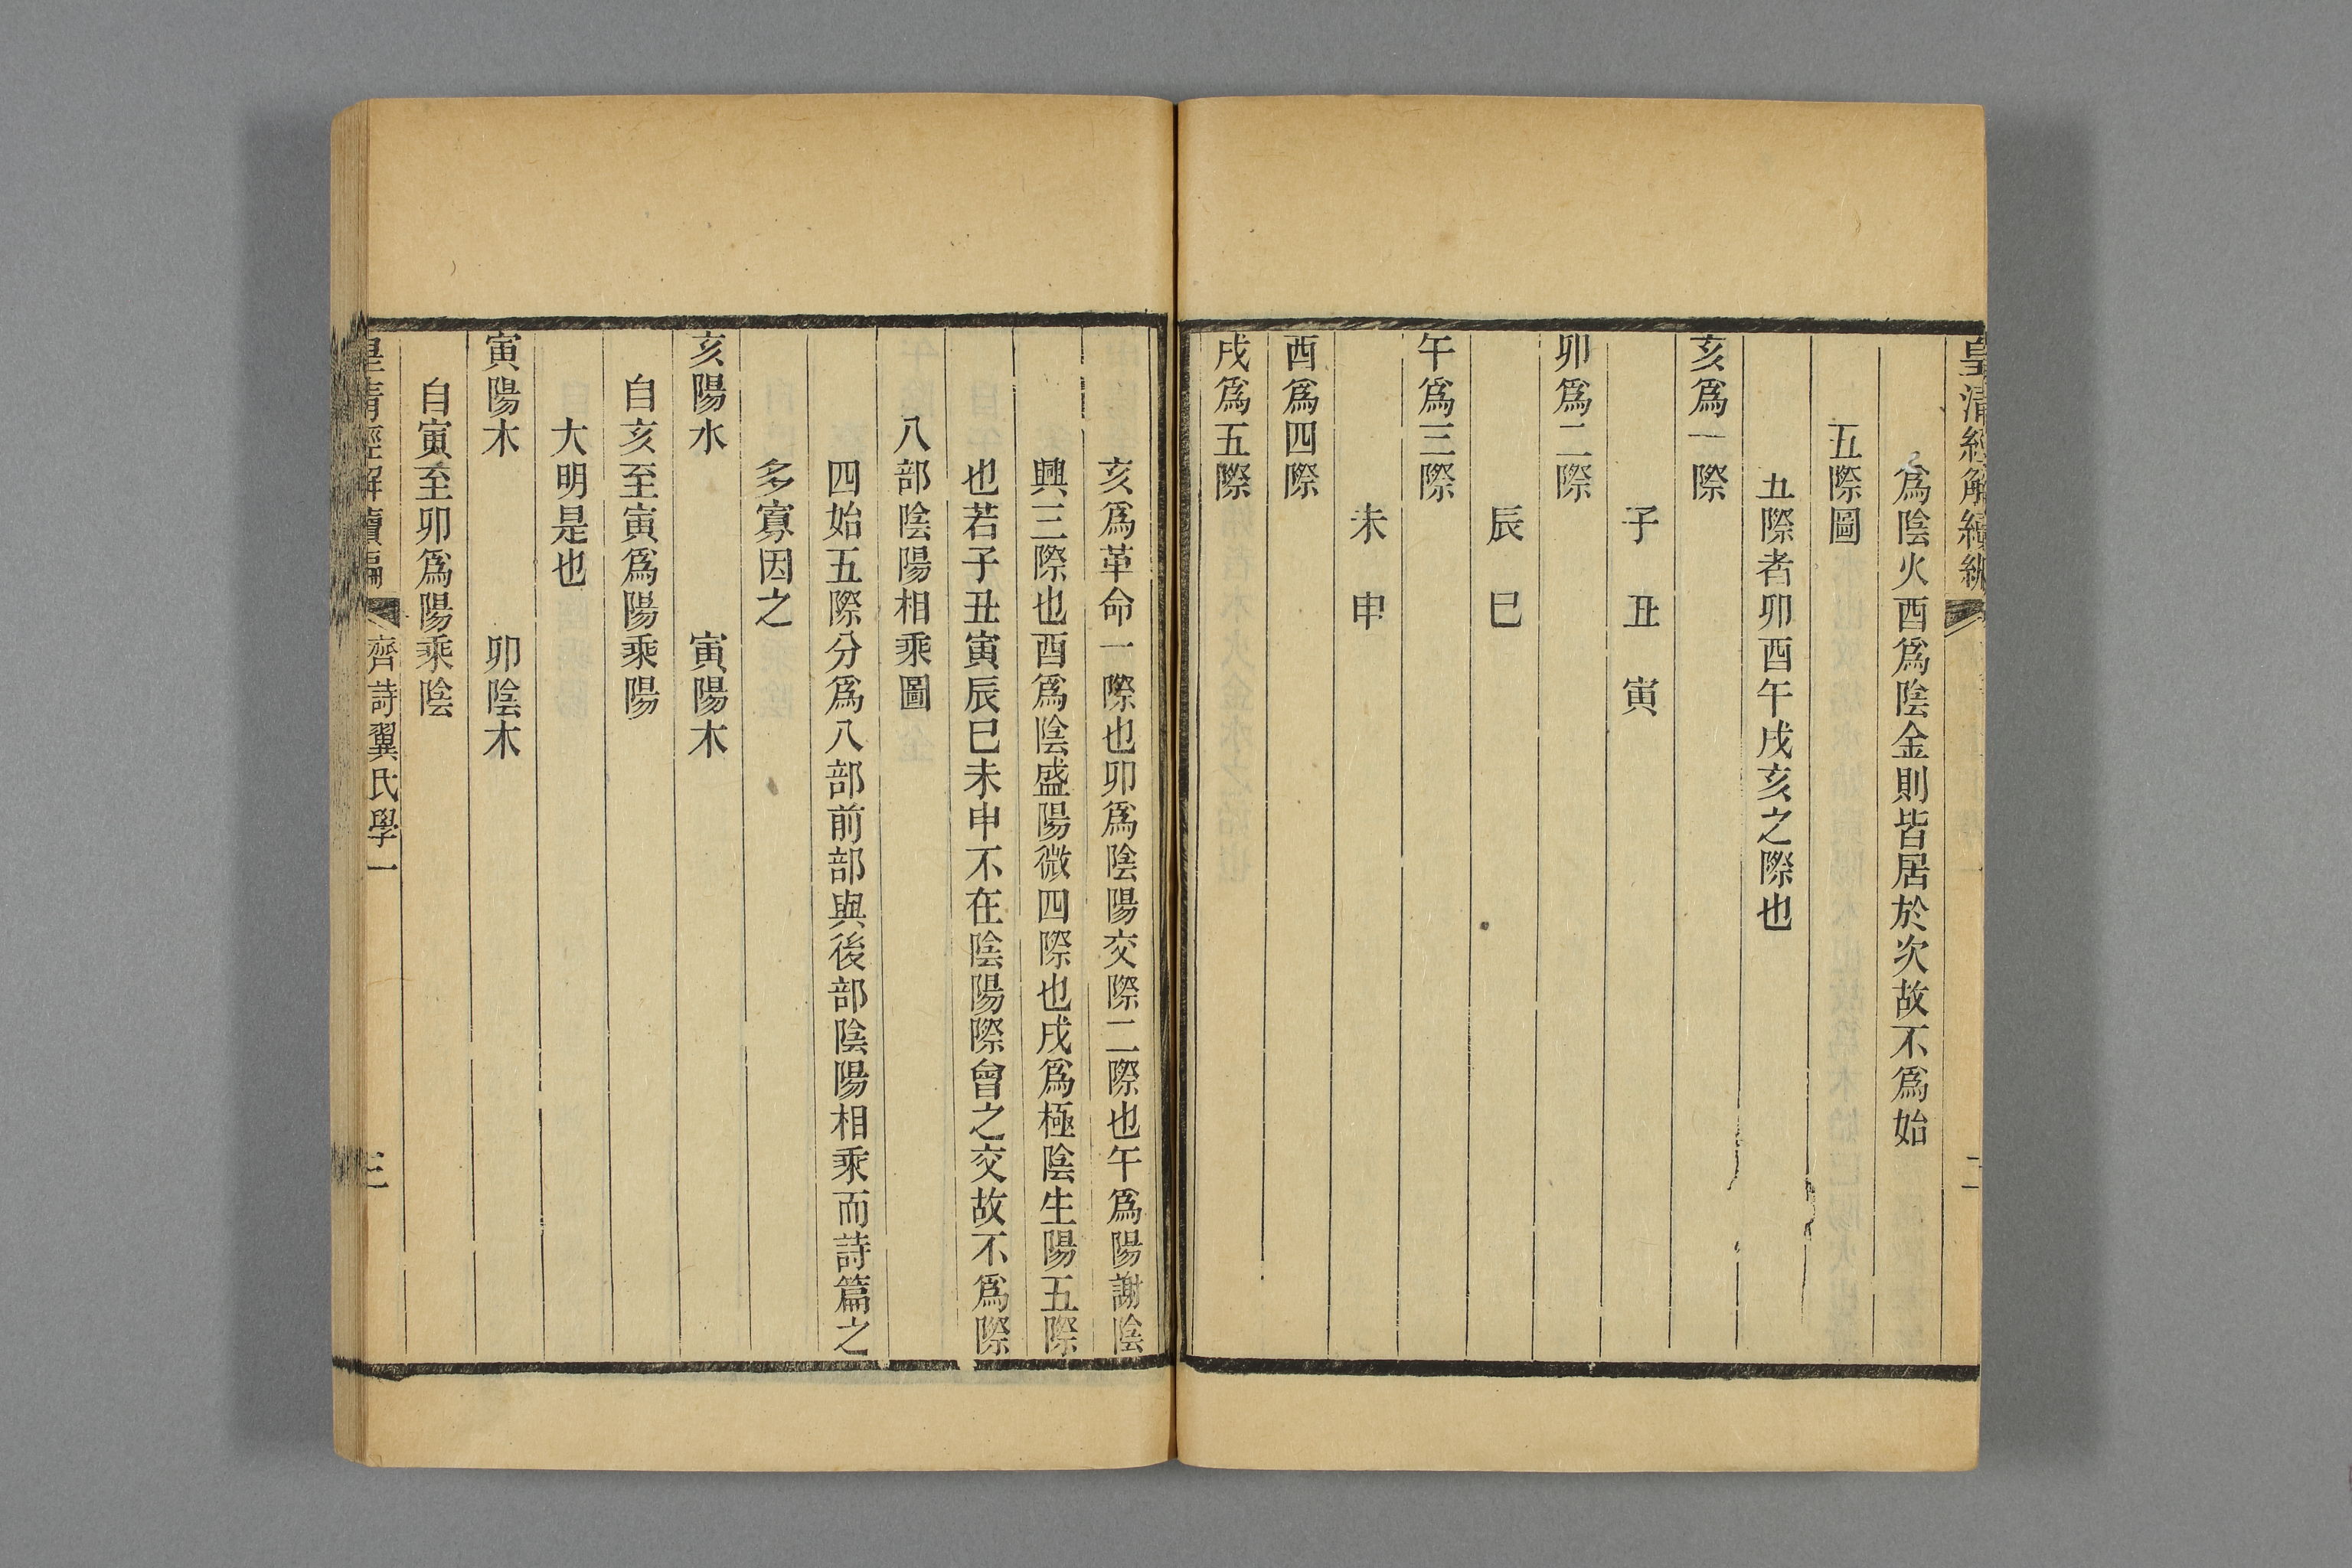 皇清經解續編
二
爲陰火酉爲陰金則皆居於次故不爲始
五際圖
五際者卯酉午戌亥之際也
亥爲一際
子　丑　寅
卯爲二際
辰　巳
午爲三際
未　申
酉爲四際
戌爲五際
亥爲革命一際也卯爲陰陽交際二際也午爲陽謝陰
興三際也酉爲陰盛陽微四際也戌爲極陰生陽五際
也若子丑寅辰巳未申不在陰陽際會之交故不爲際
八部陰陽相乘圖
四始五際分爲八部前部與後部陰陽相乘而詩篇之
多寡因之
亥陽水　寅陽木
自亥至寅爲陽乘陽
大明是也
寅陽木　卯陰木
自寅至卯爲陽乘陰
皇清經解續編　齊詩翼氏學一
三